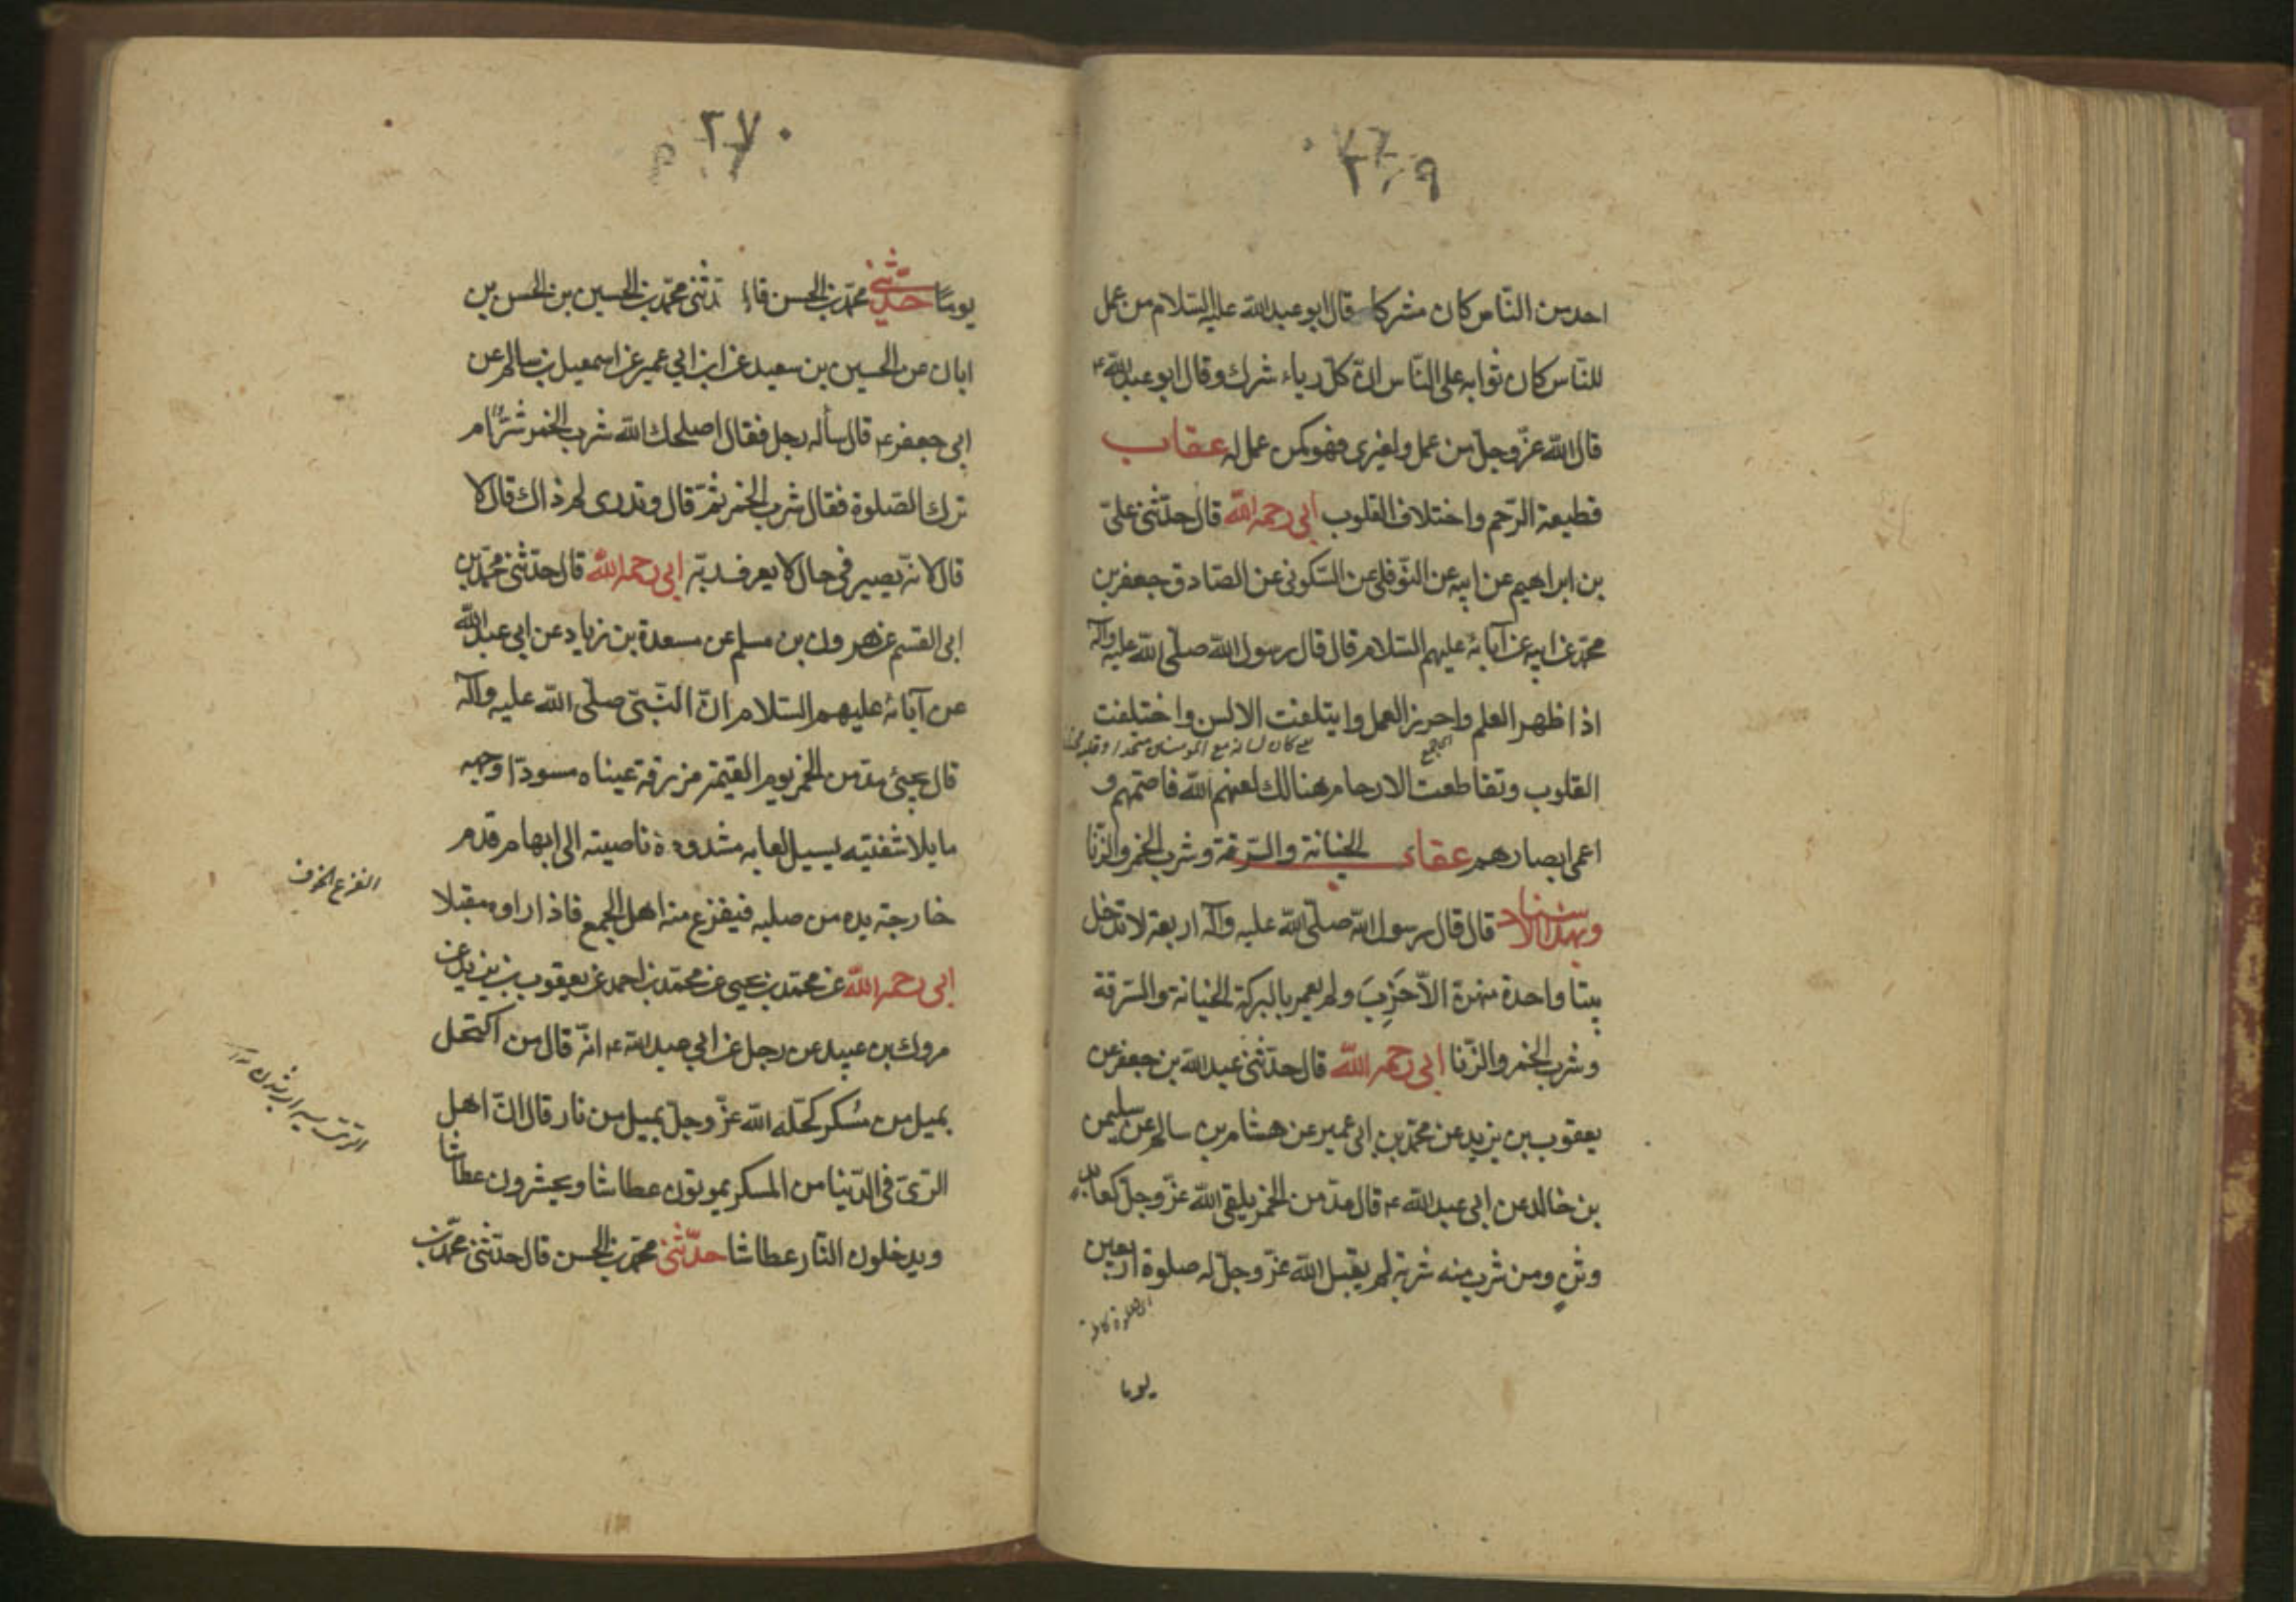 ٢٦٩
احد من الناس كان مشركا قال ابو عبد الله عليه السلام من عمل
للناس كان ثوابه على الناس ان كل رياء شرك وقال ابو عبد الله ع
قال الله عز وجل من عمل ولغيرى فهو كمن عمل له عقاب
قطيعة الرحم واختلاف القلوب ابى رحمه الله قال حدثنى على
بن ابراهيم عن ابيه عن النوفلى عن السكونى عن الصادق جعفر بن
محمد عن ابيه عن آبائه عليهم السلام قال قال رسول الله صلى الله عليه وآله
اذا ظهر العلم واحرز العمل وايتلفت الالسن واختلفت
كان لسانه مع المؤمنين متحدا
القلوب وتقاطعت الارحام هنالك لعنهم الله فاصمهم و
اعمى ابصارهم عقاب الخيانة والسرقة وشرب الخمر والزنا
وبهذا الاسناد قال قال رسول الله صلى الله عليه وآله اربعة لا تدخل
بيتا واحدة منهن الا خرب ولم يعمر بالبركة الخيانة والسرقة
وشرب الخمر والزنا ابى رحمه الله قال حدثنى عبد الله بن جعفر عن
يعقوب بن يزيد عن محمد بن ابى عمير عن هشام بن سالم عن سليمن
بن خالد عن ابى عبد الله ع قال مدمن الخمر يلقى الله عز وجل كعابد
وثن ومن شرب منه شربة لم يقبل الله عز وجل له صلوة اربعين
يوما
٢٧٠
يوما حدثنى محمد بن الحسن قال حدثنى محمد بن الحسين بن الحسن بن
ابان عن الحسين بن سعيد عن ابن ابي عمير عن اسمعيل بن سالم عن
ابى جعفر ع قال سأله رجل فقال اصلحك الله شرب الخمر شر ام
ترك الصلوة فقال شرب الخمر ثم قال وتدرى لم ذاك قال لا
قال لانه يصير فى حال لا يعرف ربه ابى رحمه الله قال حدثنى محمد بن
ابى القسم عن هرون بن مسلم عن مسعدة بن زياد عن ابى عبد الله
عن آبائه عليهم السلام ان النبى صلى الله عليه وآله
قال يجيئ مدمن الخمر يوم القيمة مزرقة عيناه مسودا وجهه
مايلا شفتيه يسيل لعابه مشدودة ناصيته الى ابهام قدم
خارجة يده من صلبه فيفزع منه اهل الجمع فاذا راوه مقبلا
الفزع الخوف
ابى رحمه الله عن محمد بن يحيى عن محمد بن احمد عن يعقوب بن يزيد عن
مروك بن عبيد عن رجل عن ابي عبد الله ع انه قال من اكتحل
بميل من مسكر كحله الله عز وجل بميل من نار قال ان اهل
الرى فى الدنيا من المسكر يموتون عطاشا ويحشرون عطاشا
ويدخلون النار عطاشا حدثنى محمد بن الحسن قال حدثنى محمد بن